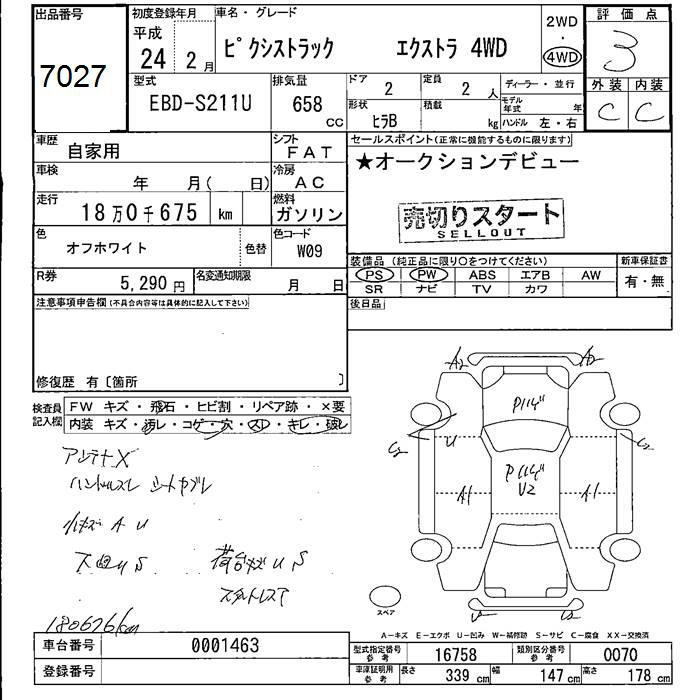 出品番号
7027
初度登録年月
平成
24 2 月
車名・グレード
ピクシストラック エクストラ 4WD
2WD
・
4WD
評価点
3
外装 内装
C C
型式
EBD-S211U
排気量
658
CC
ドア
2
定員
2 人
ディーラー・並行
形状
ヒラB
積載
kg
モデル年式 年
ハンドル 左・右
車歴
自家用
シフト
FAT
車検
年 月( 日)
冷房
AC
走行
18万0千675 km
燃料
ガソリン
色
オフホワイト
色替
色コード
W09
R券
5,290 円
名変通知期限
月 日
セールスポイント(正常に機能するものに限ります)
★オークションデビュー
売切りスタート
SELLOUT
装備品(純正品に限り○をつけてください)
PS PW ABS エアB AW
SR ナビ TV カワ
新車保証書
有・無
後日品
注意事項申告欄(不具合内容等は具体的に記入して下さい)
修復歴 有〔箇所 〕
検査員記入欄
FW キズ・飛石・ヒビ割・リペア跡・×要
内装 キズ・汚レ・コゲ・穴・スレ・キレ・破レ
アンテナX
ハンドルスレ シートヤブレ
小キズ A U
下回りS 荷台キズ U S
180676km
A2
A2
U
A1
A1
U2
スペア
A-キズ E-エクボ U-凹み W-補修跡 S-サビ C-腐食 XX-交換済
車台番号
0001463
登録番号
型式指定番号
参考
16758
類別区分番号
参考
0070
車庫証明用
参考
長さ 339 cm 幅 147 cm 高さ 178 cm